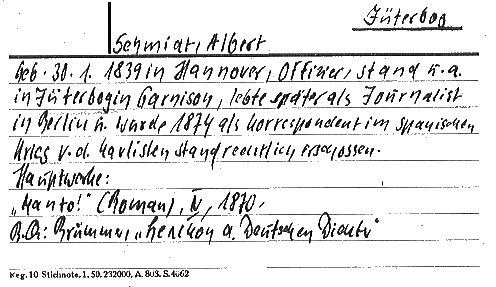 Jüterbog
Schmidt, Albert
Geb. 30. 1. 1839 in Hannover, Offizier, stand u. a.
in Jüterbog in Garnison, lebte später als Journalist
in Berlin u. wurde 1874 als Korrespondent im spanischen
Krieg v. d. Karlisten standrechtlich erschossen.
Hauptwerke:
(Roman), IV, 1870.
Brümmer, „Lexikon d. Deutschen Dichter“
Reg. 10 Stichnote. 1. 50. 232000. A. 803. S. 4662